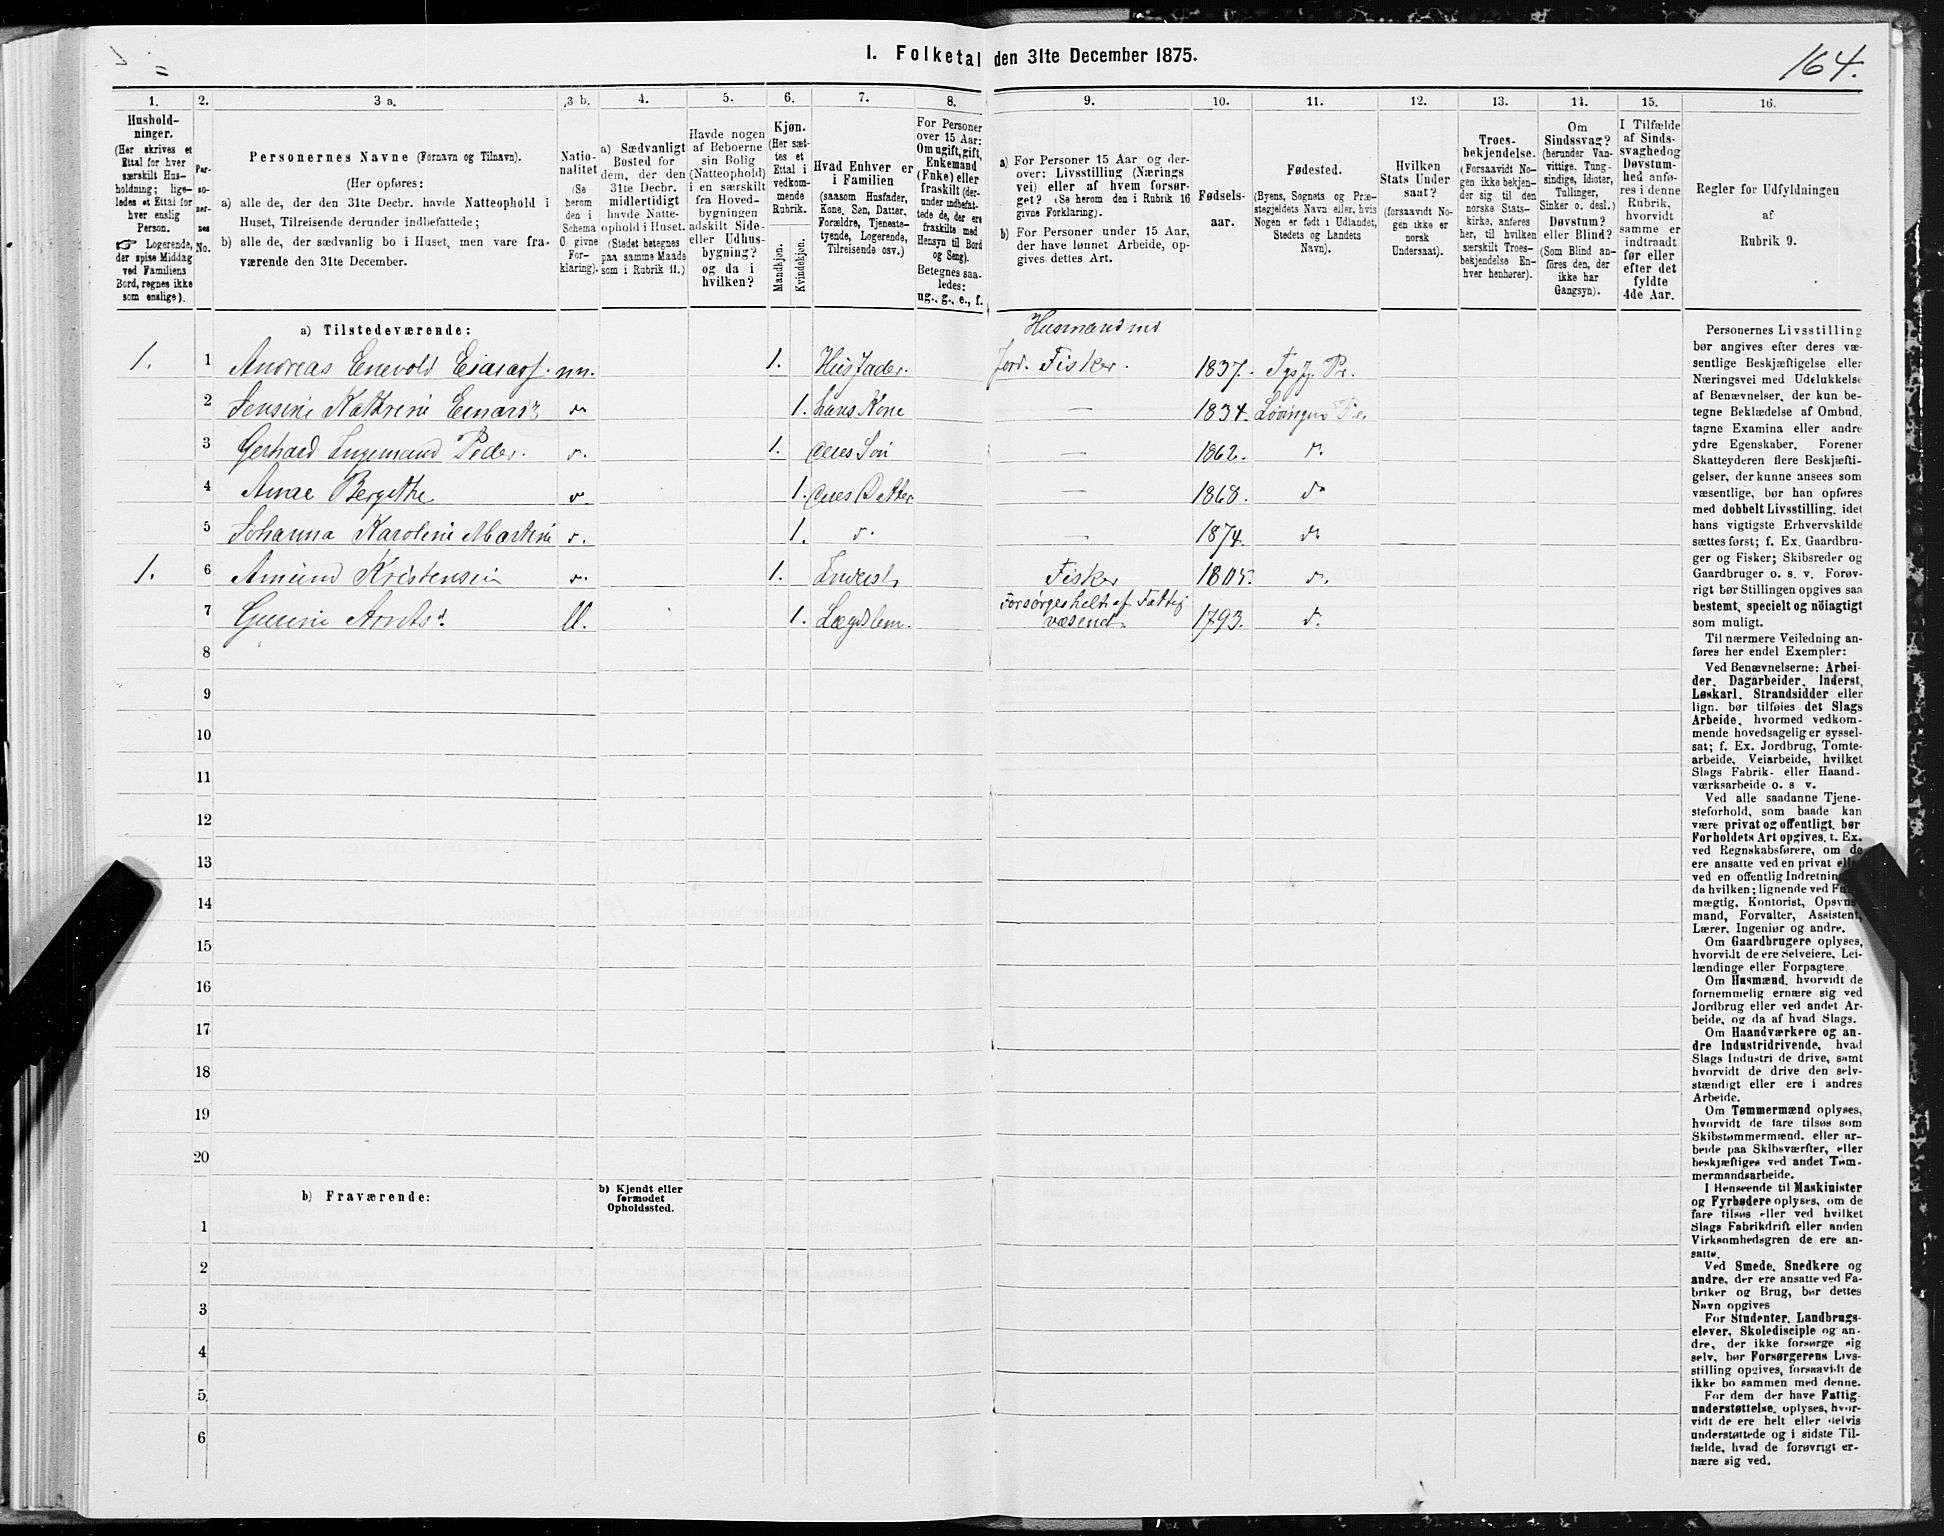 I. Folketal den 31te December 1875.
164.
1.
2.
3 a.
3 b.
4.
5.
6.
7.
8.
9.
10.
11.
12.
13.
14.
15.
16.
Hushold-
ninger.
(Her skrives et
Ettal for hver
særskilt Hus-
holdning; lige-
ledes et Ettal for
hver enslig
Person.
☞ Logerende,
der spise Middag
ved Familiens
Bord, regnes ikke
som enslige).
Per-
so-
ner-
nes
No.
Personernes Navne (Fornavn og Tilnavn).
(Her opføres:
a) alle de, der den 31te Decbr. havde Natteophold i
Huset, Tilreisende derunder indbefattede;
b) alle de, der sædvanlig bo i Huset, men vare fra-
værende den 31te December.
Natio-
nalitet
(Se
herom
den i
Schema
O givne
For-
klaring).
a) Sædvanligt
Bosted for
dem, der den
31te Decbr.
midlertidigt
havde Natte-
ophold i Huset.
(Stedet betegnes
paa samme Maade
som i Rubrik 11.)
Havde nogen
af Beboerne
sin Bolig
(Natteophold)
i en særskilt
fra Hoved-
bygningen
adskilt Side-
eller Udhus-
bygning?
og da i
hvilken?
Kjøn.
(Her sæt-
tes et
Ettal i
vedkom-
mende
Rubrik.
Mandkjøn.
Kvindekjøn.
Hvad Enhver er
i Familien
(saasom Husfader,
Kone, Søn, Datter,
Forældre, Tjeneste-
tyende, Logerende,
Tilreisende osv.)
For Personer
over 15 Aar:
Om ugift, gift,
Enkemand
(Enke) eller
fraskilt (der-
under indbefat-
tede de, der ere
fraskilte med
Hensyn til Bord
og Seng).
Betegnes saa-
ledes:
ug., g., e., f.
a) For Personer 15 Aar og der-
over: Livsstilling (Nærings
vei) eller af hvem forsør-
get? (Se herom den i Rubrik 16
givne Forklaring).
b) For Personer under 15 Aar,
der have lønnet Arbeide, op-
gives dettes Art.
Fødsels-
aar.
Fødested.
(Byens, Sognets og Præ-
stegjeldets Navn eller, hvis
Nogen er født i Udlandet,
Stedets og Landets
Navn).
Hvilken
Stats Under
saat?
(forsaavidt No-
gen ikke er
norsk
Undersaat).
Troes-
bekjendelse.
(Forsaavidt No-
gen ikke bekjen-
der sig til den
norske Stats-
kirke, anføres
her, til hvilken
særskilt Troes-
bekjendelse En-
hver henhører).
Om
Sindssvag?
(herunder Van-
vittige, Tung-
sindige, Idioter,
Tullinger,
Sinker o. desl.)
Døvstum?
eller Blind?
(Som Blind an-
føres den, der
ikke har
Gangsyn).
I Tilfælde
af Sinds-
svaghed og
Døvstum-
hed anfø-
res i denne
Rubrik,
hvorvidt
samme er
indtraadt
før eller
efter det
fyldte
4de Aar.
Regler for Udfyldningen
af
Rubrik 9.
a) Tilstedeværende:
Husmand md
1. 1 Andreas Enevold Einars. nn. 1. Husfader. Jord. Fisker. 1837. Tysfj. Pr.
2 Jensine Kathrine Einars d 1. hans Kone — 1834. Lødingen Pr.
3 Gerhard Ingemand Peder. d. 1. deres Søn — 1862. d.
4 Anne Bergithe d 1. deres Datter — 1868. do
5 Johanna Karoline Martine d. 1. d. — 1874. do
1. 6 Amund Kristensen d. 1. Inderst Fisker 1805. d.
7 Gurine Arnts d. ll. 1. Lægdslem. Forsørges helt af Fattig 1793. d.
væsenet.
8
9
10
11
12
13
14
15
16
17
18
19
20
b) Fraværende:
b) Kjendt eller
formodet
Opholdssted.
1
2
3
4
5
6
Personernes Livsstilling
bør angives efter deres væ-
sentlige Beskjæftigelse eller
Næringsvei med Udelukkelse
af Benævnelser, der kun be-
tegne Beklædelse af Ombud,
tagne Examina eller andre
ydre Egenskaber. Forener
Skatteyderen flere Beskjæfti-
gelser, der kunne ansees som
væsentlige, bør han opføres
med dobbelt Livsstilling, idet
hans vigtigste Erhvervskilde
sættes først; f. Ex. Gaardbru-
ger og Fisker; Skibsreder og
Gaardbruger o. s. v. Forøv-
rigt bør Stillingen opgives saa
bestemt, specielt og nöiagtigt
som muligt.
Til nærmere Veiledning an-
føres her endel Exempler:
Ved Benævnelserne: Arbei-
der, Dagarbeider, Inderst,
Løskarl, Strandsidder eller
lign. bør tilføies det Slags
Arbeide, hvormed vedkom-
mende hovedsagelig er syssel-
sat; f. Ex. Jordbrug, Tomte-
arbeide, Veiarbeide, hvilket
Slags Fabrik- eller Haand-
værksarbeide o. s v.
Ved alle saadanne Tjene-
steforhold, som baade kan
være privat og offentligt, bør
Forholdets Art opgives, t. Ex.
ved Regnskabsførere, om de
ere ansatte ved en privat eller
ved en offentlig Indretning
da hvilken; lignende ved Fuld-
mægtig, Kontorist, Opsyns-
mand, Forvalter, Assistent,
Lærer, Ingeniør og andre.
Om Gaardbrugere oplyses,
hvorvidt de ere Selveiere, Lei-
lændinge eller Forpagtere.
Om Husmænd, hvorvidt de
fornemmelig ernære sig ved
Jordbrug eller ved andet Ar-
beide, og da af hvad Slags.
Om Haandværkere og an-
dre Industridrivende, hvad
Slags Industri de drive, samt
hvorvidt de drive den selv-
stændigt eller ere i andres
Arbeide.
Om Tømmermænd oplyses,
hvorvidt de fare tilsøs som
Skibstømmermænd, eller ar-
beide paa Skibsværfter, eller
beskjæftiges ved andet Tøm-
mermandsarbeide.
I Henseende til Maskinister
og Fyrbødere oplyses, om de
fare tilsøs eller ved hvilket
Slags Fabrikdrift eller anden
Virksomhedsgren de ere an-
satte.
Ved Smede, Snedkere og
andre, der ere ansatte ved Fa-
briker og Brug, bør dettes
Navn opgives
For Studenter, Landbrugs-
elever, Skoledisciple og an-
dre, der ikke forsørge sig
selv, bør Forsørgerens Livs-
stilling opgives, forsaavidt de
ikke bo sammen med denne.
For dem der have Fattig-
understøttelse, oplyses, hvor-
vidt de ere helt eller delvis
understøttede og i sidste Til-
fælde, hvad de forøvrigt er-
nære sig ved.